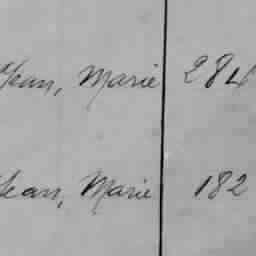 Jean, Marie 284
Jean, Marie 182